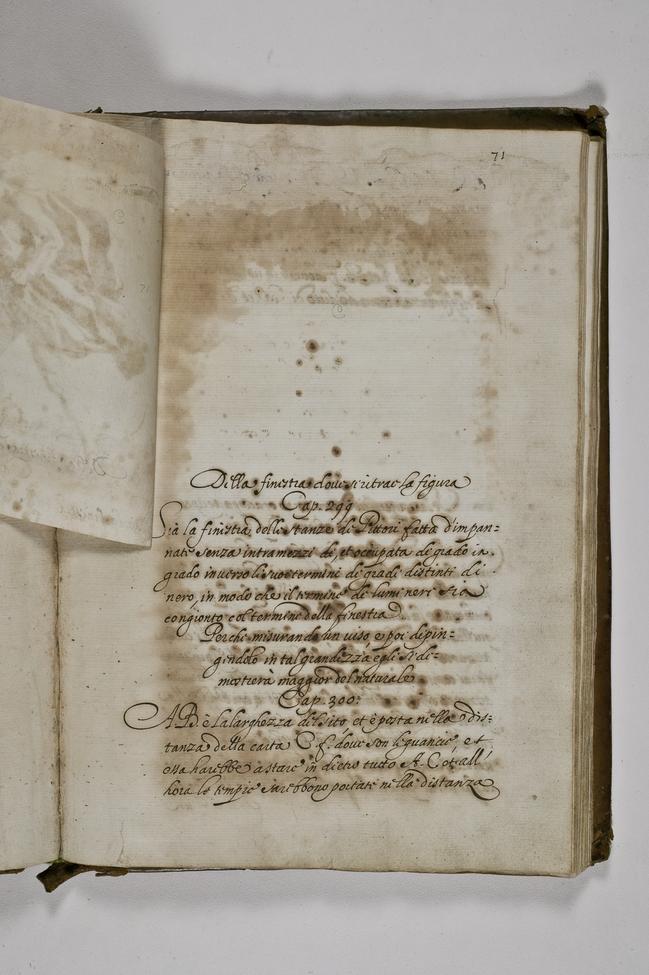 71
Della finestra doue si ritrae la figura
Cap. 299
Sia la finestra delle stanze di Pittori fatta d'impan=
nate senza intramezzi di, et occupata di grado in
grado inuerso li suoi termini di gradi distinti di
nero, in modo che il termine di lumi neri sia
congionto col termine della finestra
Perche misurando un uiso, e poi dipin=
gendolo in tal grandezza egli si di=
mostrerà maggior del naturale
Cap. 300:
A B. è la larghezza del sito, et è posta nella dis=
tanza della carta C f. doue son le guancie, et
essa harebbe a stare in dietro tutto A. C et all'
hora le tempie sarebbono portate nella distanza